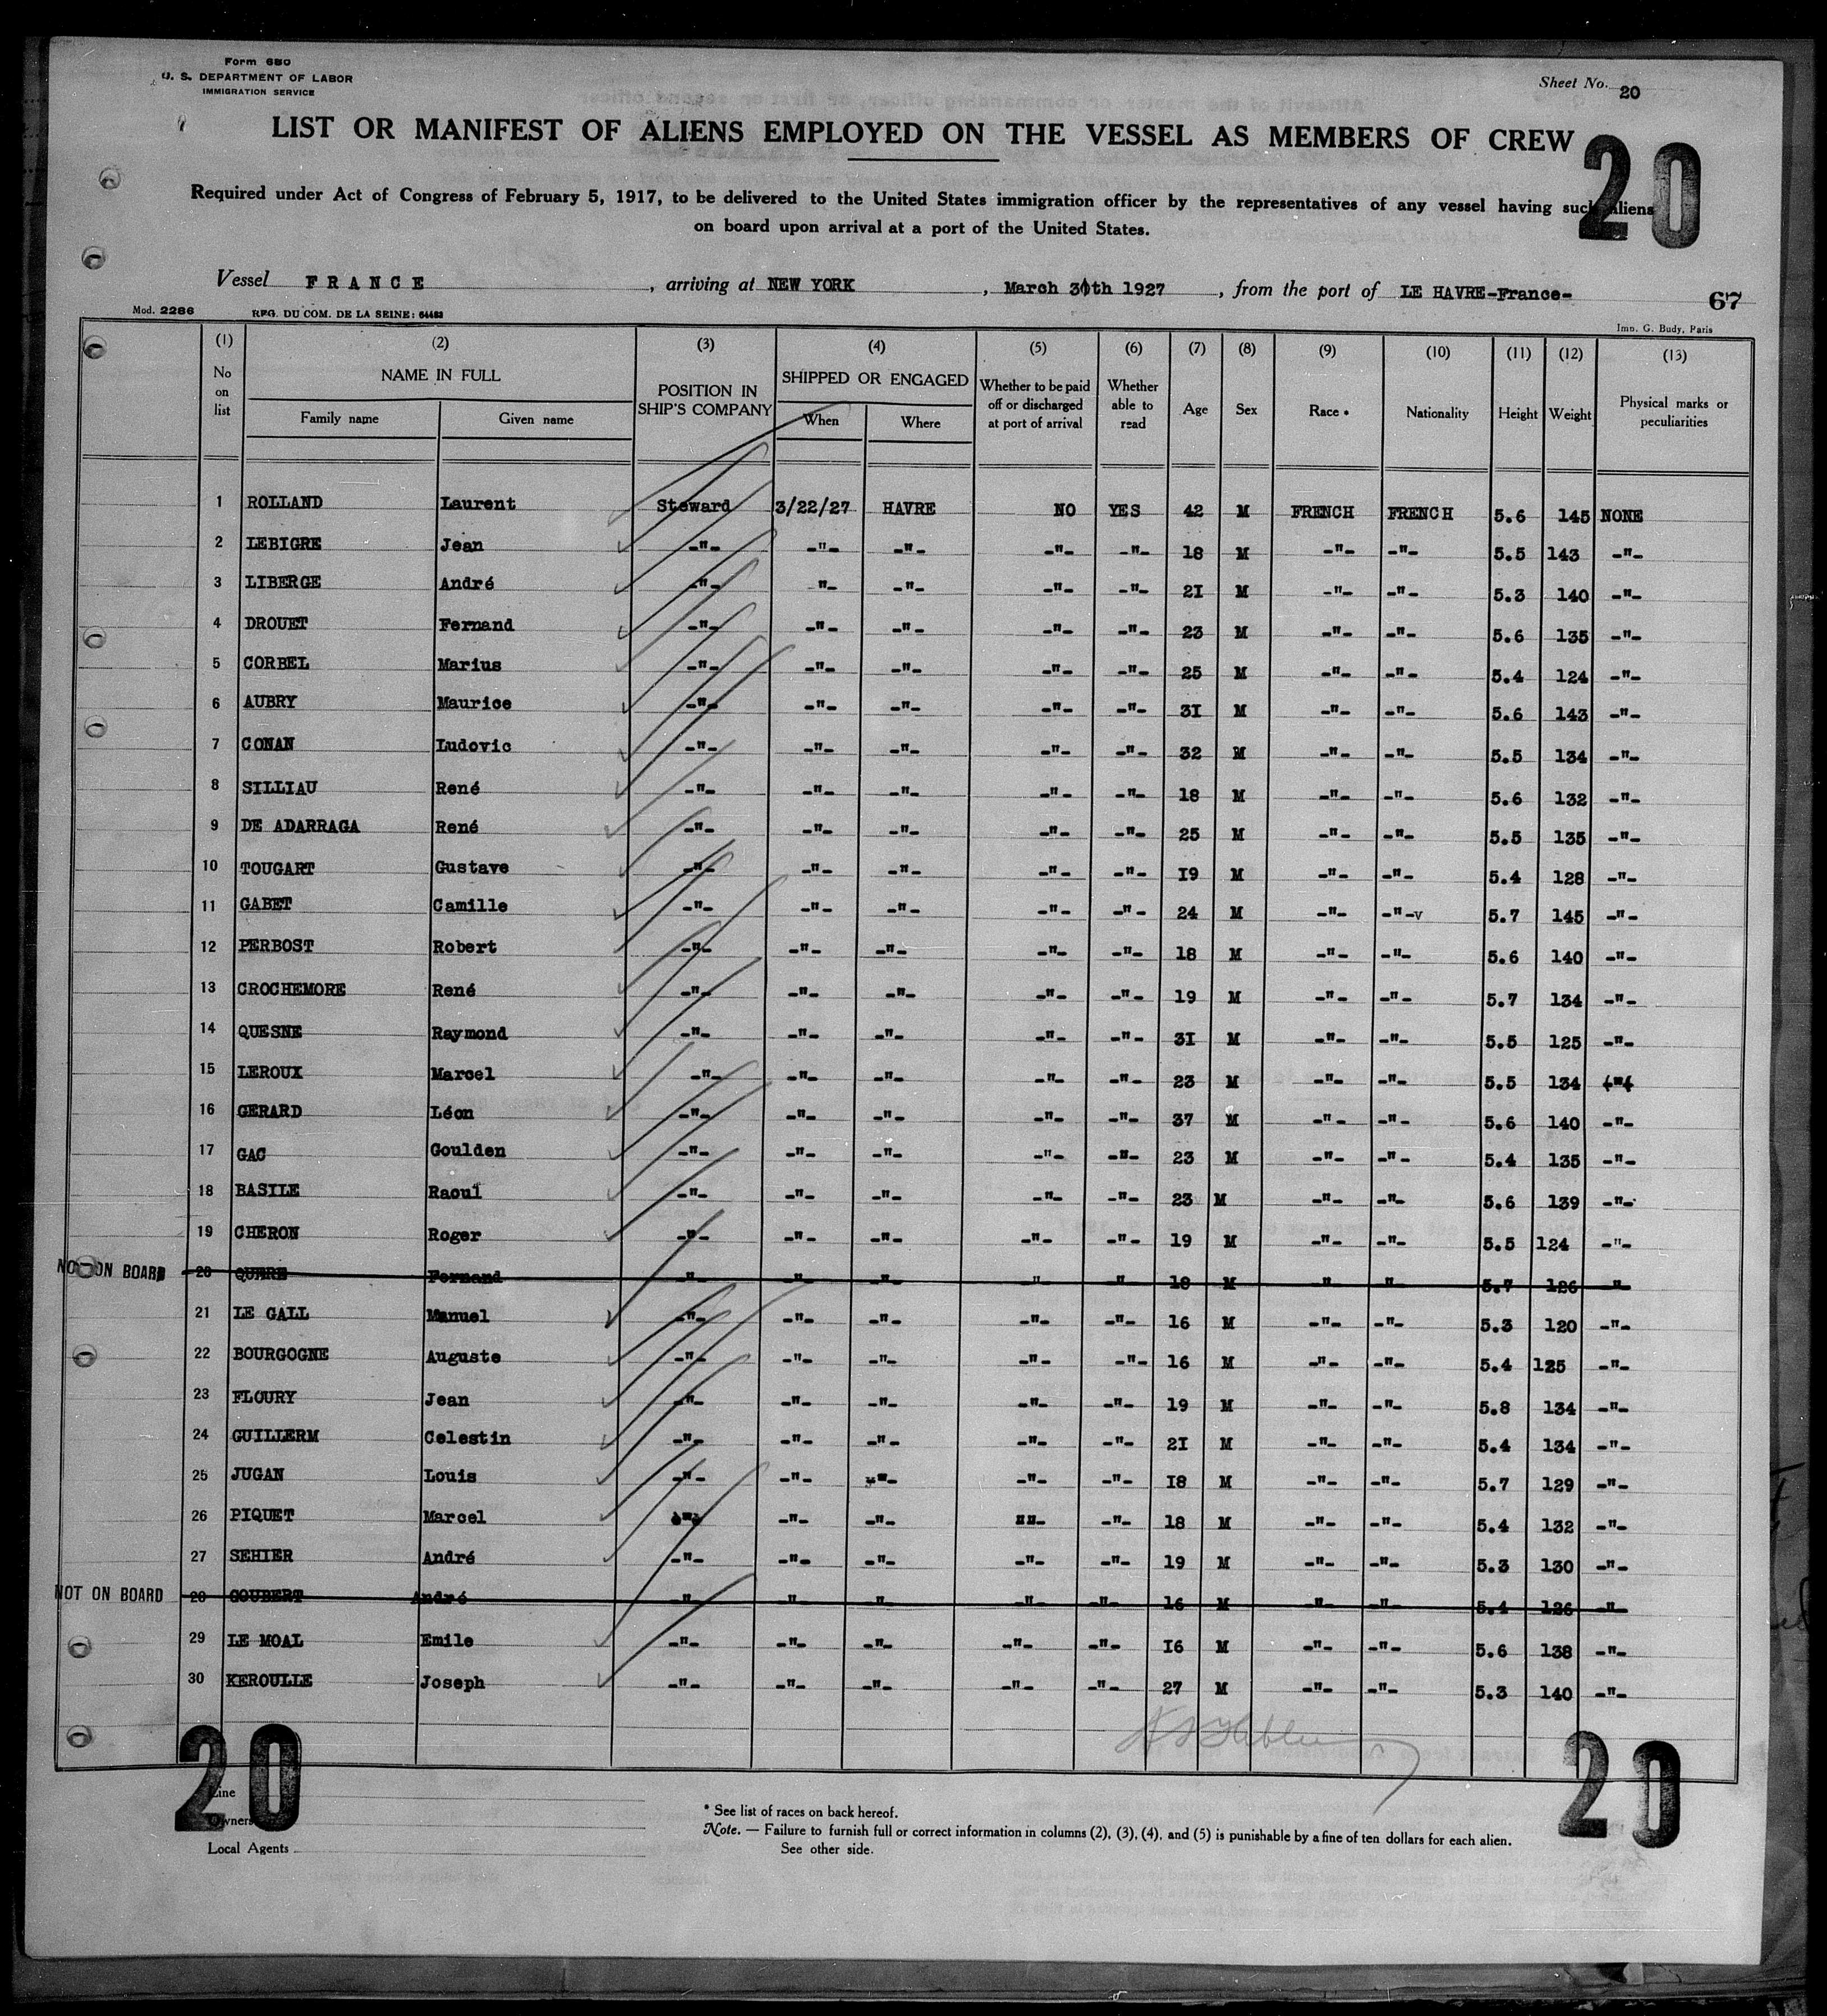 Form 680
U. S. DEPARTMENT OF LABOR
IMMIGRATION SERVICE
Sheet No. 20
LIST OR MANIFEST OF ALIENS EMPLOYED ON THE VESSEL AS MEMBERS OF CREW
20
Required under Act of Congress of February 5, 1917, to be delivered to the United States immigration officer by the representatives of any vessel having such aliens
on board upon arrival at a port of the United States.
Vessel FRANCE, arriving at NEW YORK, March 30th 1927, from the port of LE HAVRE-France-
67
Mod. 2286 REG. DU COM. DE LA SEINE: 64483 Imp. G. Budy, Paris
(1) (2) (3) (4) (5) (6) (7) (8) (9) (10) (11) (12) (13)
No on list NAME IN FULL Family name Given name POSITION IN SHIP'S COMPANY SHIPPED OR ENGAGED When Where Whether to be paid off or discharged at port of arrival Whether able to read Age Sex Race * Nationality Height Weight Physical marks or peculiarities
1 ROLLAND Laurent Steward 3/22/27 HAVRE NO YES 42 M FRENCH FRENCH 5.6 145 NONE
2 LEBIGRE Jean -"- -"- -"- -"- -"- 18 M -"- -"- 5.5 143 -"-
3 LIBERGE André -"- "- -"- -"- -"- 21 M -"- -"- 5.3 140 -"-
4 DROUET Fernand -"- -"- -"- -"- -"- 23 M -"- -"- 5.6 135 -"-
5 CORBEL Marius -"- -"- -"- -"- -"- 25 M -"- -"- 5.4 124 -"-
6 AUBRY Maurice -"- -"- -"- -"- -"- 31 M -"- -"- 5.6 143 -"-
7 CONAN Ludovic -"- -"- -"- -"- -"- 32 M -"- -"- 5.5 134 -"-
8 SILLIAU René -"- -"- -"- -"- -"- 18 M -"- -"- 5.6 132 -"-
9 DE ADARRAGA René -"- -"- -"- -"- -"- 25 M -"- -"- 5.5 135 -"-
10 TOUGART Gustave -"- -"- -"- -"- -"- 19 M -"- -"- 5.4 128 -"-
11 GABET Camille -"- -"- -"- -"- -"- 24 M -"- -"-v 5.7 145 -"-
12 PERBOST Robert -"- -"- -"- -"- -"- 18 M -"- -"- 5.6 140 -"-
13 CROCHEMORE René -"- -"- -"- -"- -"- 19 M -"- -"- 5.7 134 -"-
14 QUESNE Raymond -"- -"- -"- -"- -"- 31 M -"- -"- 5.5 125 -"-
15 LEROUX Marcel -"- -"- -"- -"- -"- 23 M -"- -"- 5.5 134 ("(
16 GERARD Léon -"- -"- -"- -"- -"- 37 M -"- -"- 5.6 140 -"-
17 GAC Goulden -"- -"- -"- -"- -"- 23 M -"- -"- 5.4 135 -"-
18 BASILE Raoul -"- -"- -"- -"- -"- 23 M -"- -"- 5.6 139 -"-
19 CHERON Roger -"- -"- -"- -"- -"- 19 M -"- -"- 5.5 124 -"-
NOT ON BOARD 20 QUERE Fernand -"- -"- -"- " " 18 M " " 5.7 126 -"-
21 LE GALL Manuel -"- -"- -"- -"- -"- 16 M -"- -"- 5.3 120 -"-
22 BOURGOGNE Auguste -"- -"- -"- -"- -"- 16 M -"- -"- 5.4 125 -"-
23 FLOURY Jean -"- -"- -"- -"- -"- 19 M -"- -"- 5.8 134 -"-
24 GUILLERM Celestin -"- -"- -"- -"- -"- 21 M -"- -"- 5.4 134 -"-
25 JUGAN Louis -"- -"- -"- -"- -"- 18 M -"- -"- 5.7 129 -"-
26 PIQUET Marcel -"- -"- -"- ""- -"- 18 M -"- -"- 5.4 132 -"-
27 SEHIER André -"- -"- -"- -"- -"- 19 M -"- -"- 5.3 130 -"-
NOT ON BOARD 28 GOUBERT André -"- -"- -"- -"- -"- 16 M -"- -"- 5.4 126 -"-
29 LE MOAL Emile -"- -"- -"- -"- -"- 16 M -"- -"- 5.6 138 -"-
30 KEROULLE Joseph -"- -"- -"- -"- -"- 27 M -"- -"- 5.3 140 -"-
20 20
Line
Owners
Local Agents
* See list of races on back hereof.
Note. — Failure to furnish full or correct information in columns (2), (3), (4), and (5) is punishable by a fine of ten dollars for each alien.
See other side.